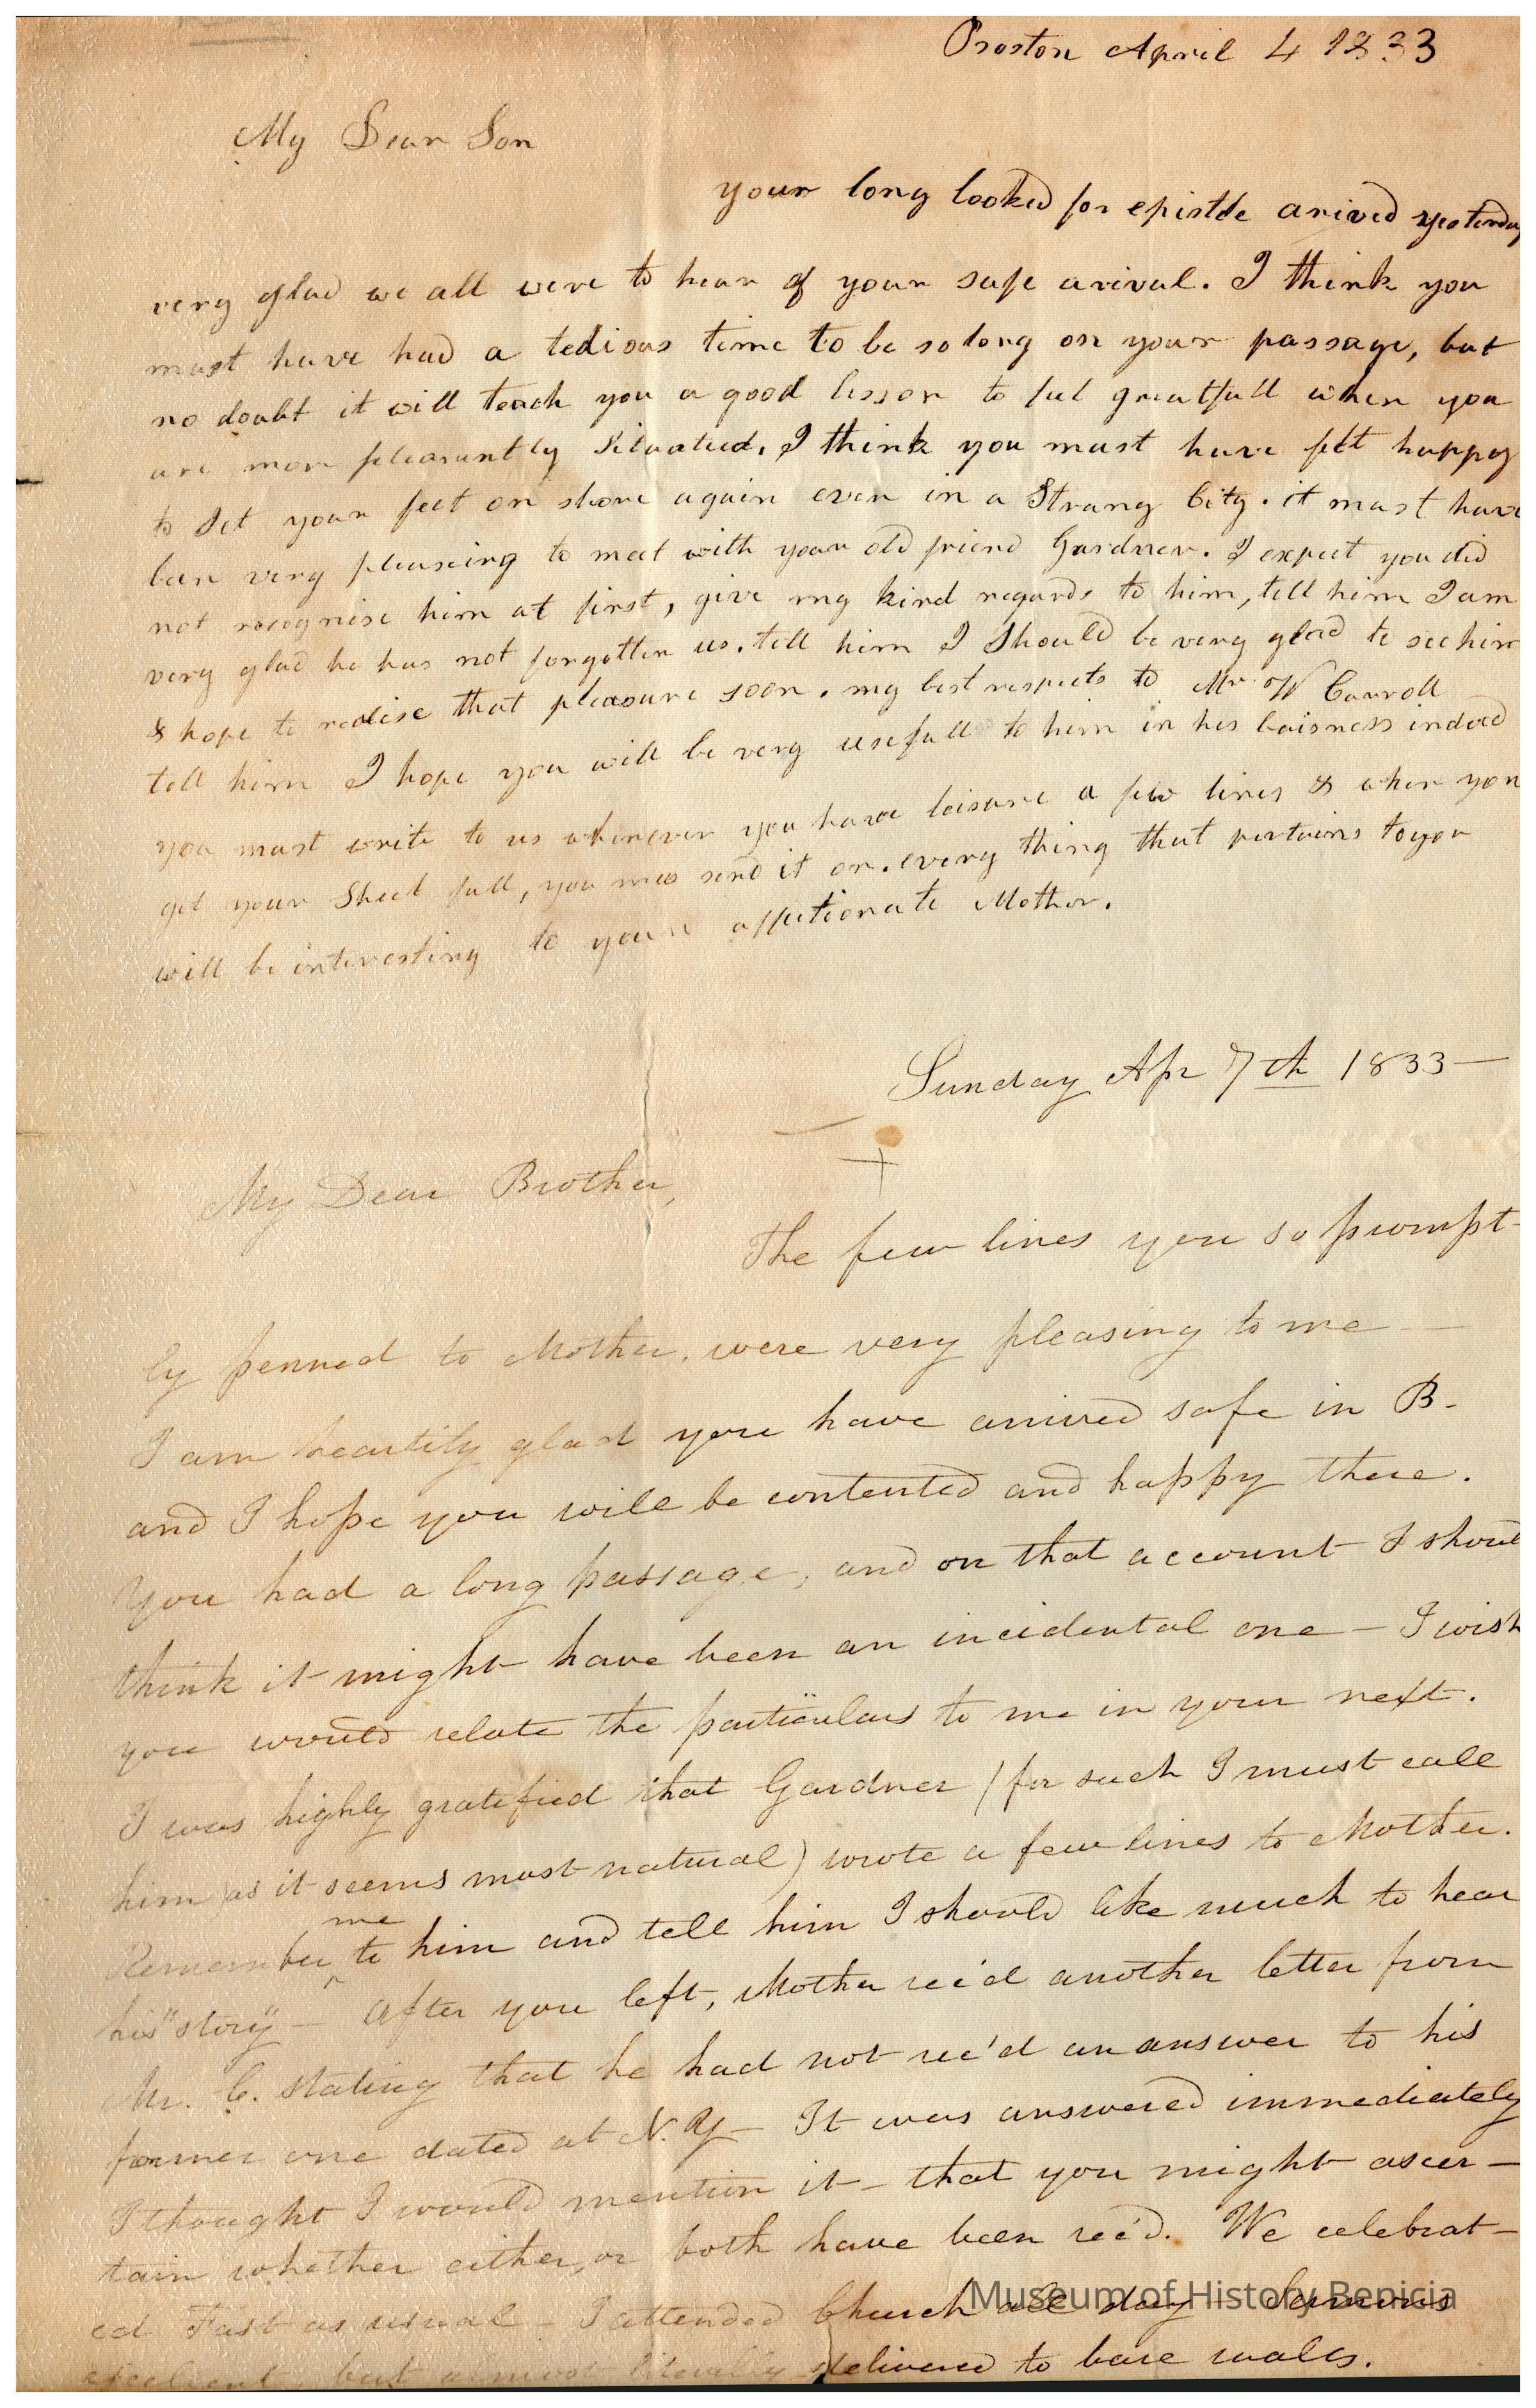 Boston April 4 1833
My Dear Son
your long looked for epistle arived yesterday
very glad we all were to hear of your safe arival. I think you
must have had a tedious time to be so long on your passage, but
no doubt it will teach you a good lesson to feel greatfull when you
are more pleasantly Situated. I think you must have felt happy
to Set your feet on shore again even in a Strang City. it must have
ben very pleaseing to meet with your old friend Gardner. I expect you did
not recognise him at first, give my kind regards to him, tell him I am
very glad he has not forgotten us. tell him I Should be very glad to see him
& hope to realise that pleasure soon. my best respects to Mr W Carroll
tell him I hope you will be very usefull to him in his buisness indeed
you must write to us whenever you have leisure a few lines & when you
get your Sheet full, you may send it on. every thing that pertains to you
will be interesting to your affectionate Mother.
Sunday Apr 7th 1833—
My Dear Brother,
The few lines you so prompt-
ly penned to Mother, were very pleasing to me —
I am heartily glad you have arrived safe in B-
and I hope you will be contented and happy there.
You had a long passage, and on that account I should
think it might have been an incidental one – I wish
you would relate the particulars to me in your next.
I was highly gratified that Gardner (for such I must call
him as it seems most natural) wrote a few lines to Mother.
Remember me to him and tell him I should like much to hear
his "story" – After you left, Mother rec'd another letter from
Mr. C. stating that he had not rec'd an answer to his
former one dated at N.Y – It was answered immediately
I thought I would mention it – that you might ascer-
tain whether either, or both have been rec'd. We celebrat-
ed Fast as usual – I attended Church all day – Sermons
excellent, but almost literally delivered to bare walls.
Museum of History Benicia